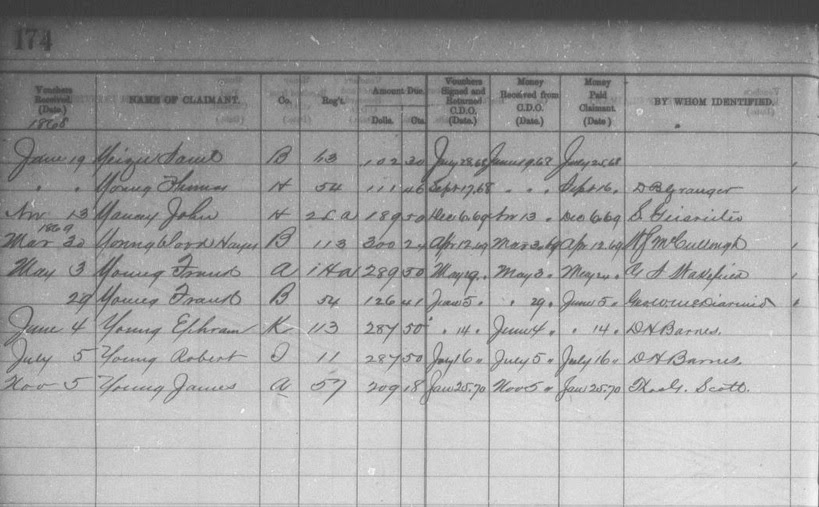 174
Vouchers Received, (Date.) NAME OF CLAIMANT. Co. Reg't. Amount Due. Dolls. Cts. Vouchers Signed and Returned C.D.O. (Date.) Money Received from C.D.O. (Date.) Money Paid Claimant. (Date) BY WHOM IDENTIFIED.
1868
June 19 B 63 102 30 July 28.68 June 19.68 July 25.68
" " Young H 54 111 46 Sept 17.68 " " " Sept 16 " D B Granger
Nov 13 John H 189 50 Dec 6.69 Nov 13 " Dec 6.69 S
1869
Mar 30 Youngblood B 113 300 24 Apr 12.69 Mar 30.69 Apr 12.69 McCullough
May 3 Young Frank A 289 50 May " May 3 " May "
29 Young Frank B 54 126 41 June 5 " " 29 " June 5 "
June 4 Young Ephram K 113 287 50 " 14 " June 4 " " 14 " D H Barnes.
July 5 Young Robert 11 287 50 July 16 " July 5 " July 16 " D H Barnes.
Nov 5 Young James A 57 209 18 Jan 25.70 Nov 5 " Jan 25.70 Scott.